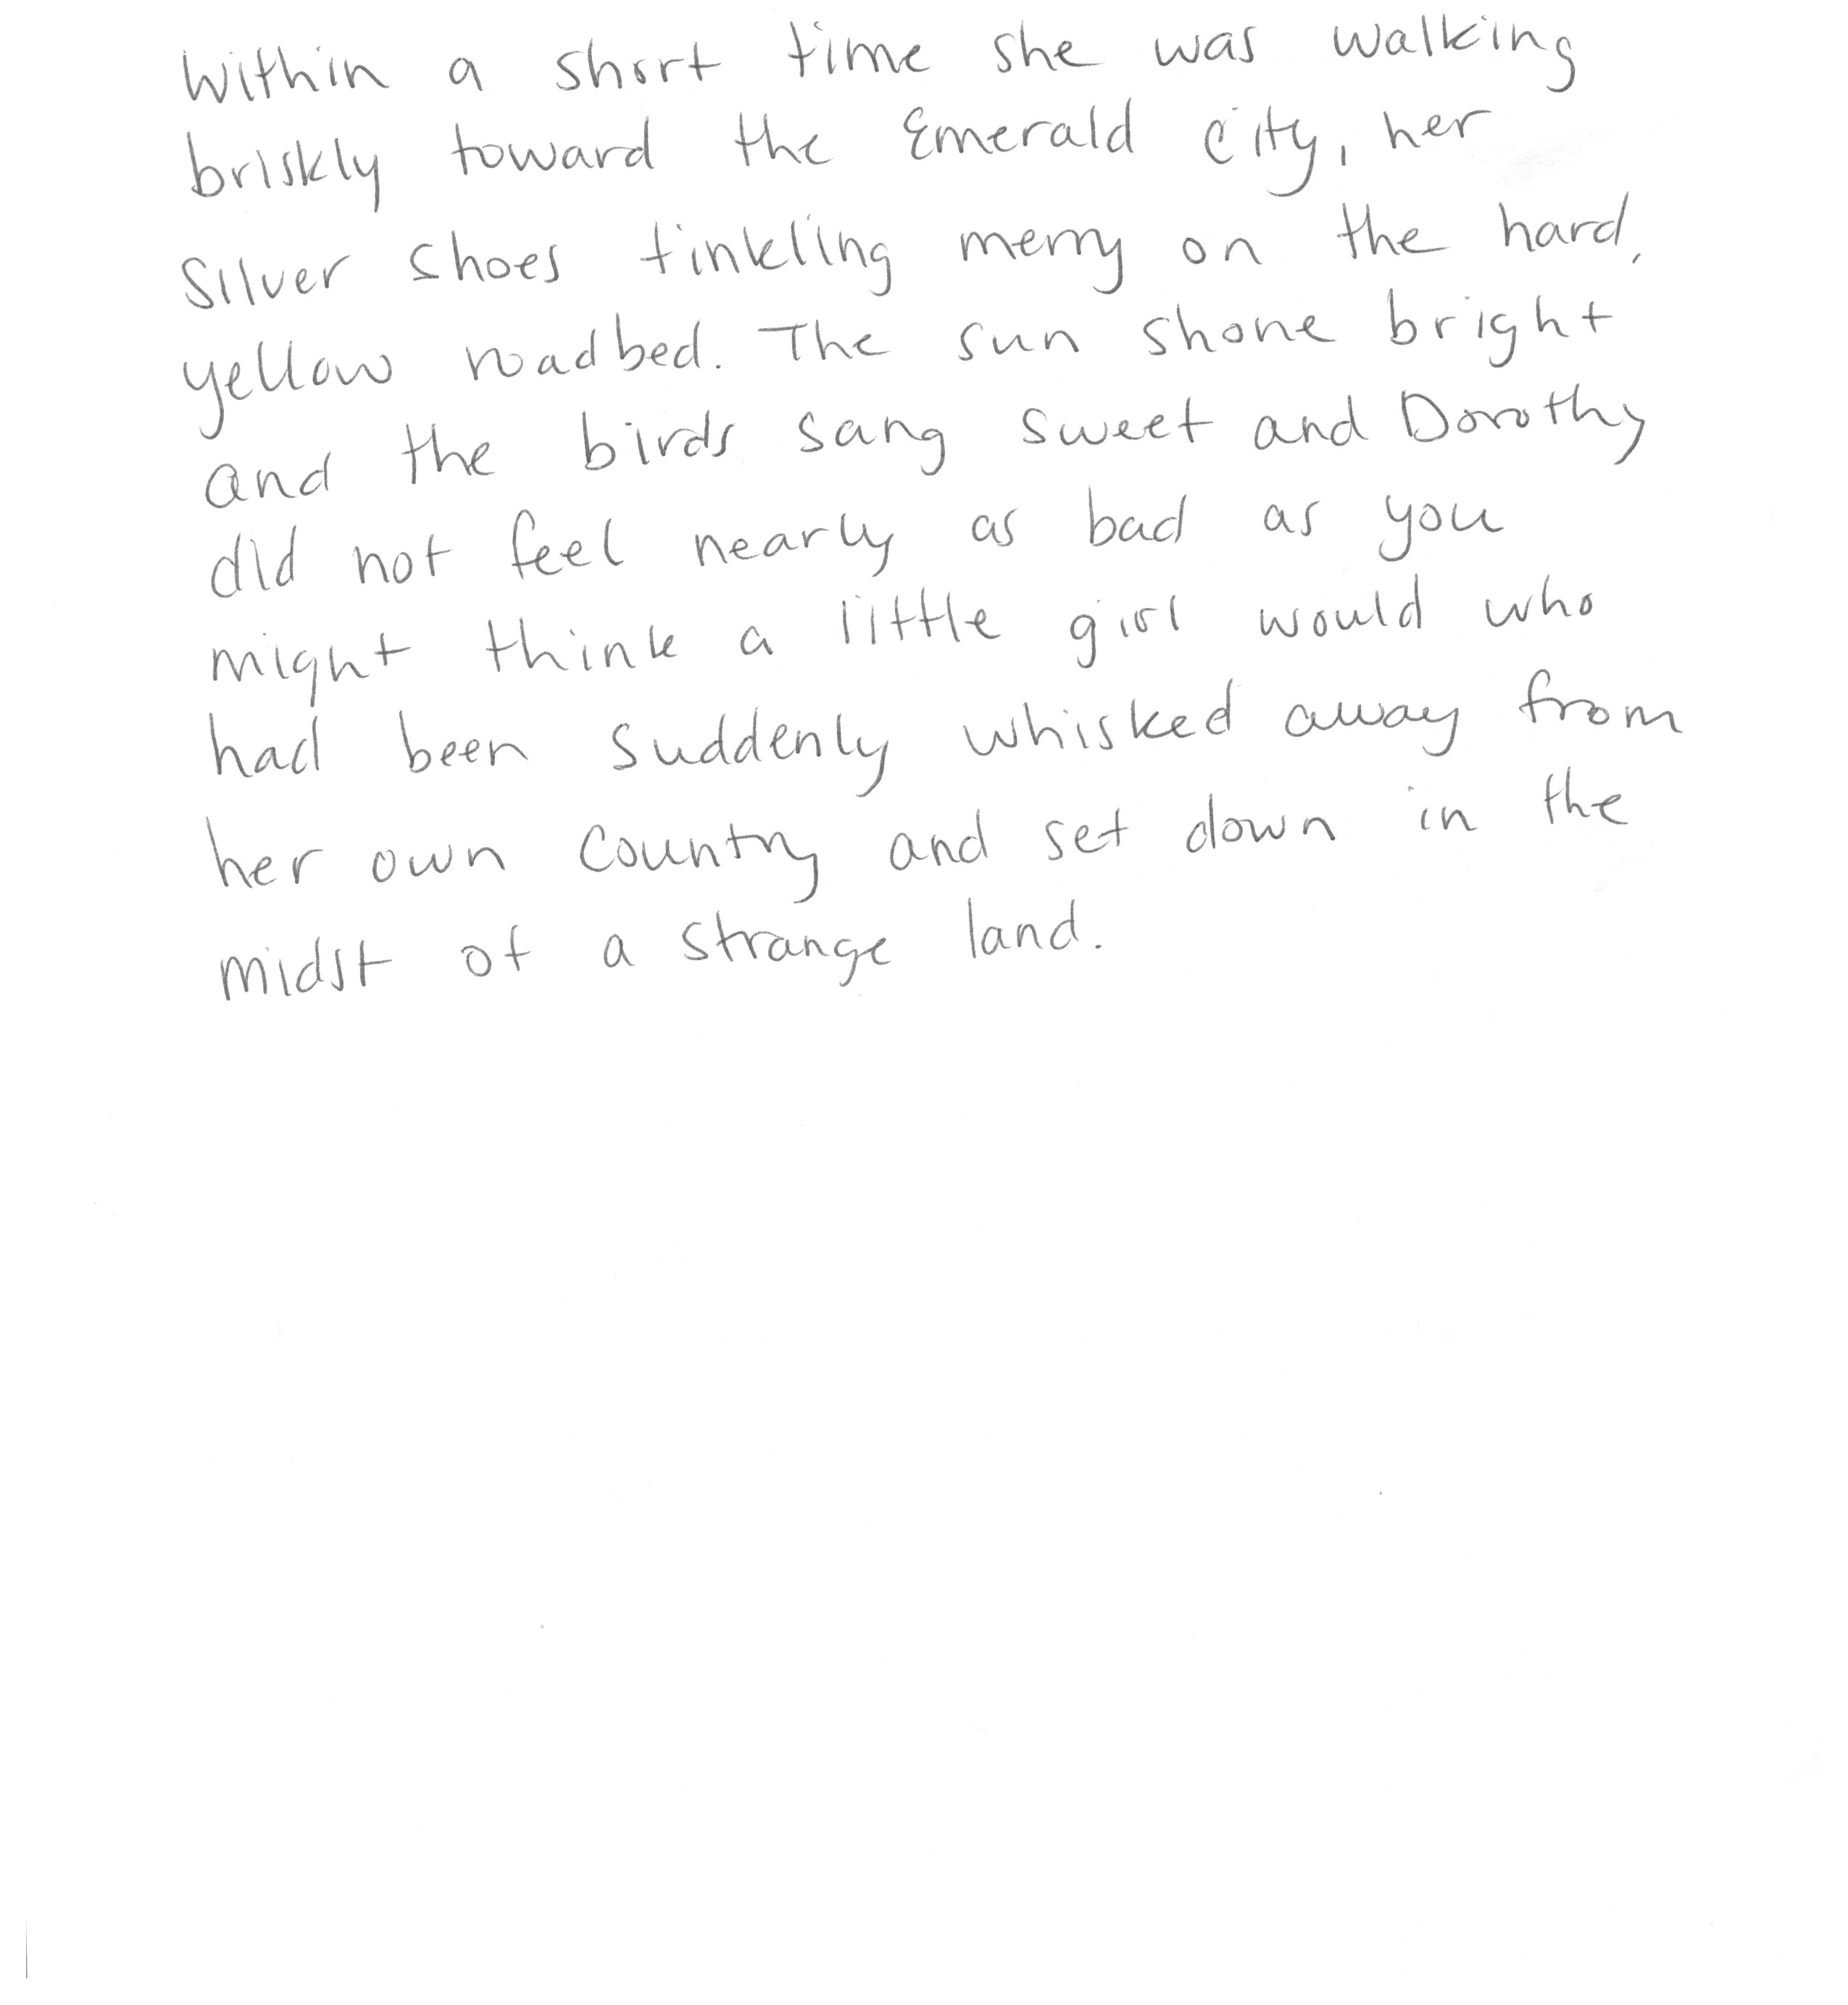 Within a short time she was walking
briskly toward the Emerald City, her
Silver Shoes tinkling merry on the hard,
yellow roadbed. The sun shone bright
and the birds sang sweet and Dorothy
did not feel nearly as bad as you
might think a little girl would who
had been suddenly whisked away from
her own country and set down in the
midst of a strange land.